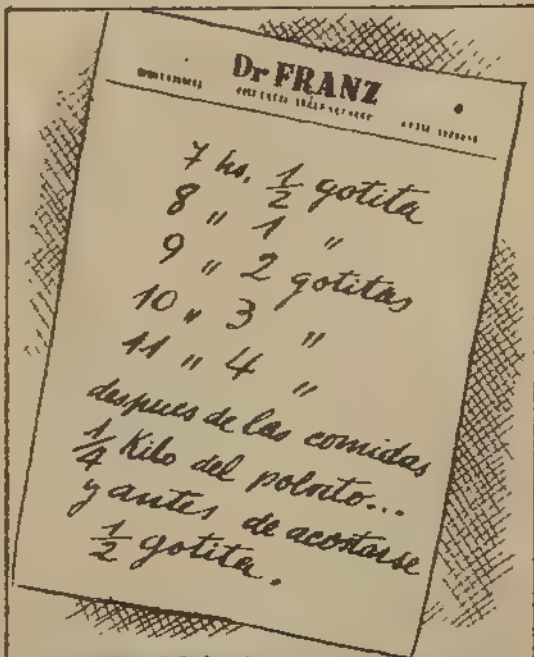 Dr FRANZ
7 hs. 1/2 gotita
8 " 1 "
9 " 2 gotitas
10 " 3 "
11 " 4 "
despues de las comidas
1/4 Kilo del polvito...
y antes de acostarse
1/2 gotita.